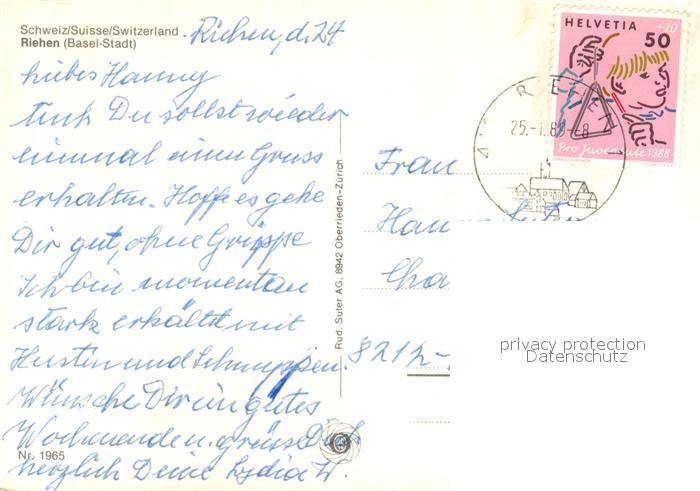 Schweiz/Suisse/Switzerland
Riehen (Basel-Stadt)
Riehen, d. 24
Liebes Hanny
Auch Du sollst wieder
einmal einen Gruss
erhalten. Hoffe es gehe
Dir gut, ohne Grippe
Ich bin momentan
stark erkältet mit
Husten und Schnuppen.
Wünsche Dir ein gutes
Wochenende u. grüsse Dich
herzlich Deine Lydia H.
Nr. 1965
Rud. Suter AG, 8942 Oberrieden-Zürich
HELVETIA +20
50
Pro Juventute 1988
25.-1.89-8
Frau
8212
privacy protection
Datenschutz